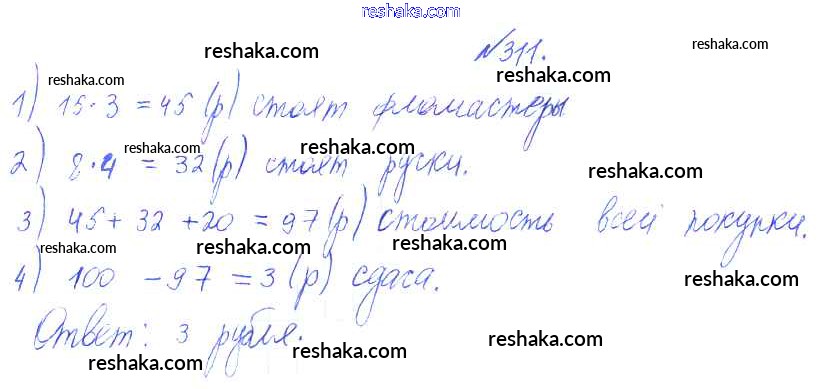 reshaka.com
№311.
reshaka.com reshaka.com
reshaka.com
1) 15·3 = 45 (р) стоят фломастеры
reshaka.com reshaka.com
2) 8·4 = 32 (р) стоят ручки.
reshaka.com
3) 45 + 32 + 20 = 97 (р) стоимость всей покупки.
reshaka.com reshaka.com reshaka.com
4) 100 - 97 = 3 (р) сдача.
reshaka.com
Ответ: 3 рубля.
reshaka.com reshaka.com reshaka.com